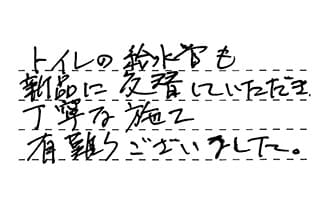 トイレの給水管も
新品に交替していただき
丁寧な施工
有難うございました。